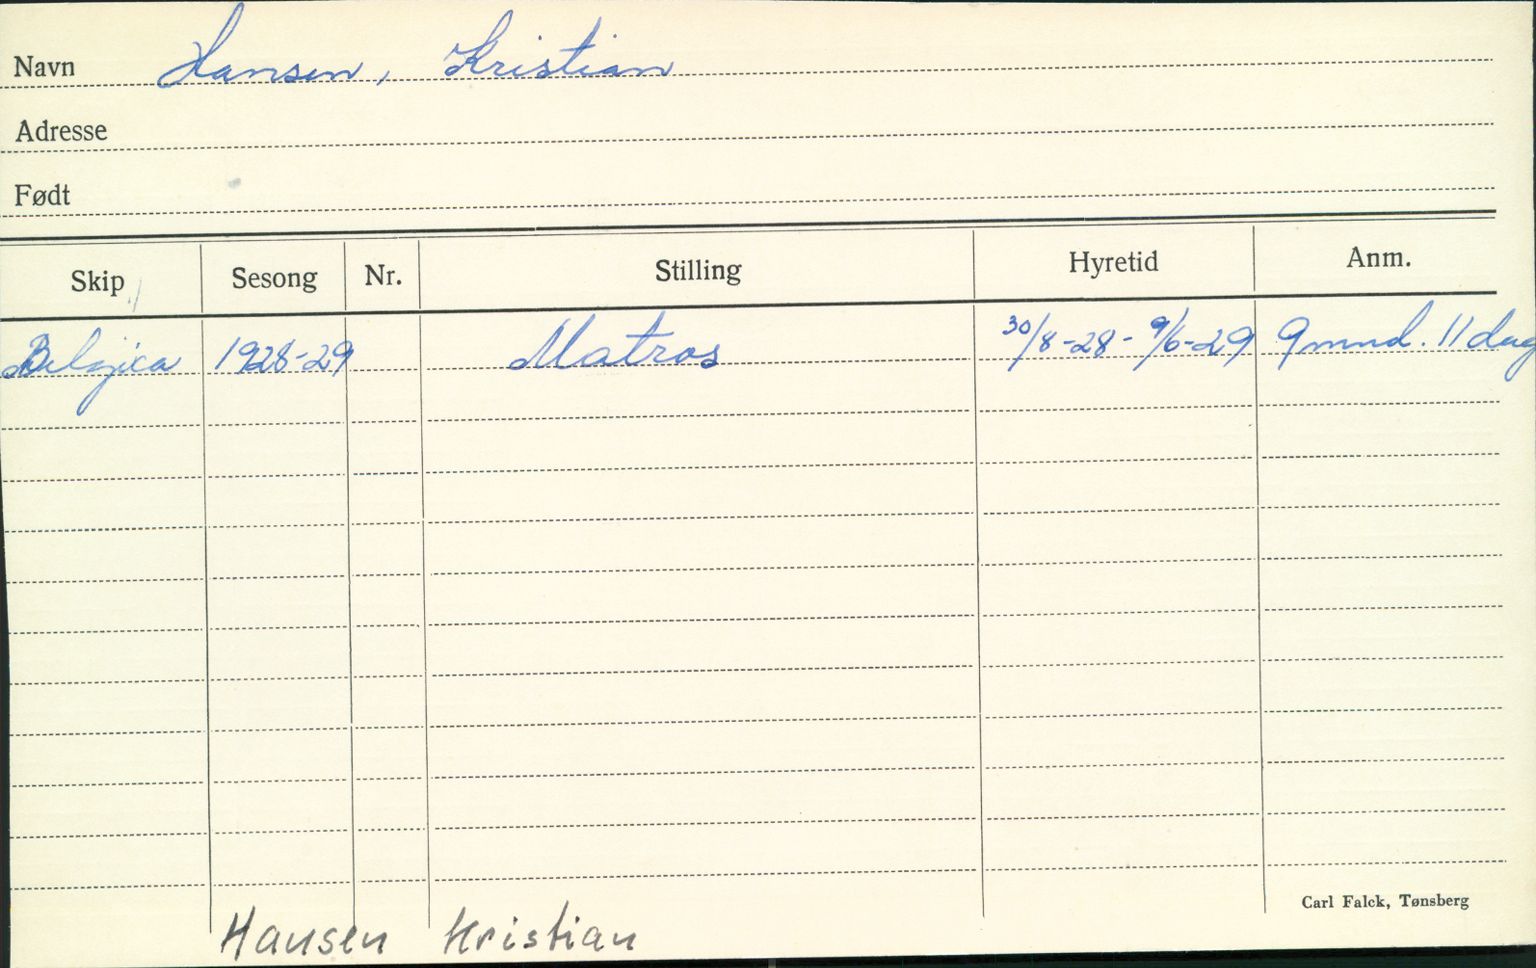 Navn Hansen, Kristian
Adresse
Født
Skip Sesong Nr. Stilling Hyretid Anm.
Belgica 1928-29 Matros 30/8-28 - 9/6-29 9 mnd. 11 dag
Carl Falck, Tønsberg
Hansen Kristian